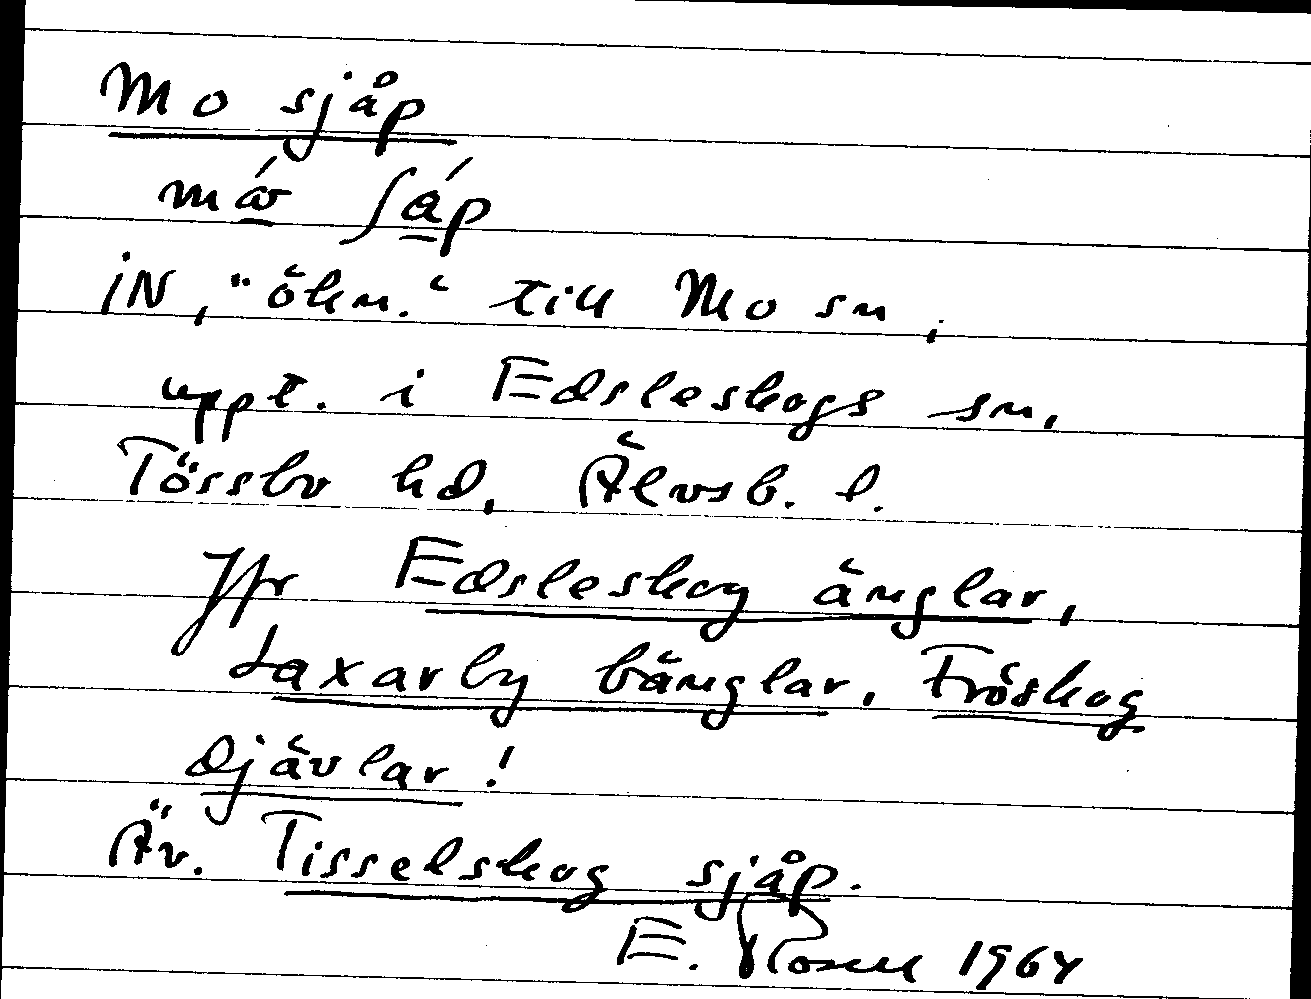 Mo sjåp
mó̱ ʃá̱p
iN, "ökn." till Mo sn,
uppt. i Edsleskogs sn,
Tössbo hd, Älvsb. l.
Jfr Edsleskog änglar,
Laxarby bänglar, Fröskog
djävlar!
Äv. Tisselskog sjåp.
E. Rosell 1964